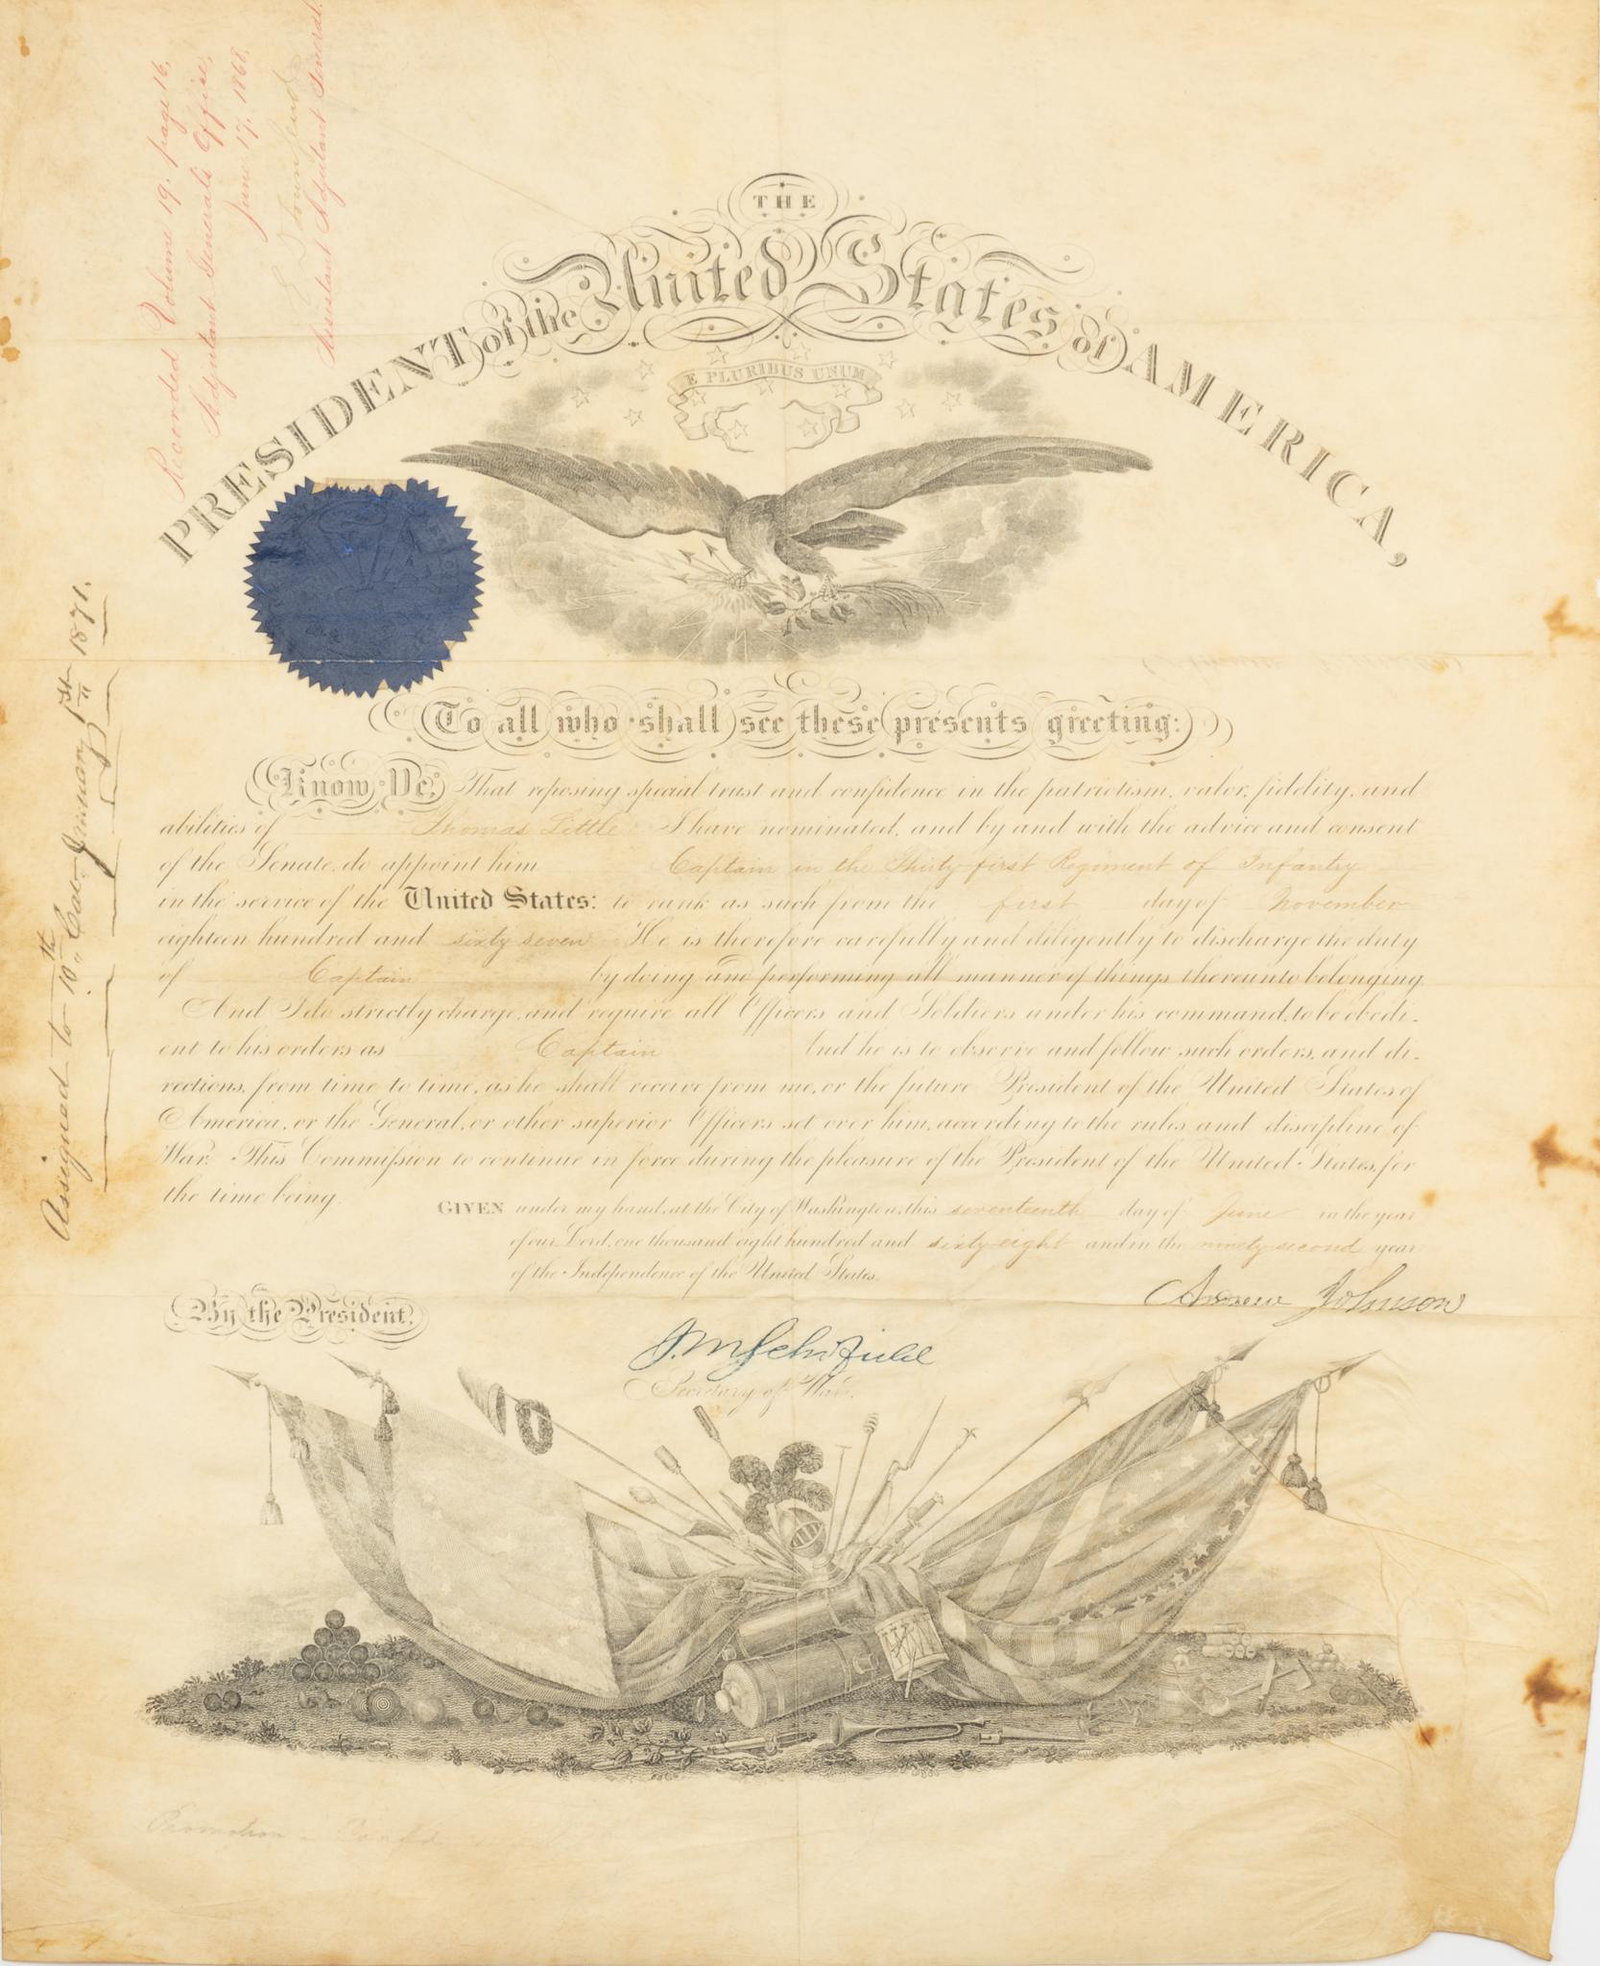 Recorded Volume 19. page 16.
Adjutant General's Office,
June 17. 1868.
E D Townsend
Assistant Adjutant General.
THE
PRESIDENT of the United States of AMERICA,
E PLURIBUS UNUM
Assigned to 10th Cav. January 1st 1871.
To all who shall see these presents greeting:
Know Ye, That reposing special trust and confidence in the patriotism, valor, fidelity, and
abilities of Thomas Little I have nominated, and by and with the advice and consent
of the Senate, do appoint him Captain in the Thirty-first Regiment of Infantry
in the service of the United States: to rank as such from the first day of November
eighteen hundred and sixty seven He is therefore carefully and diligently to discharge the duty
of Captain by doing and performing all manner of things thereunto belonging.
And I do strictly charge, and require all Officers and Soldiers under his command, to be obedi-
ent to his orders as Captain And he is to observe and follow such orders, and di-
rections, from time to time, as he shall receive from me, or the future President of the United States of
America, or the General, or other superior Officers set over him, according to the rules and discipline of
War. This Commission to continue in force during the pleasure of the President of the United States, for
the time being.
GIVEN under my hand, at the City of Washington, this seventeenth day of June in the year
of our Lord, one thousand eight hundred and sixty-eight and in the ninety-second year
of the Independence of the United States.
Andrew Johnson
By the President,
J. M. Schofield
Secretary of War.
Promotion